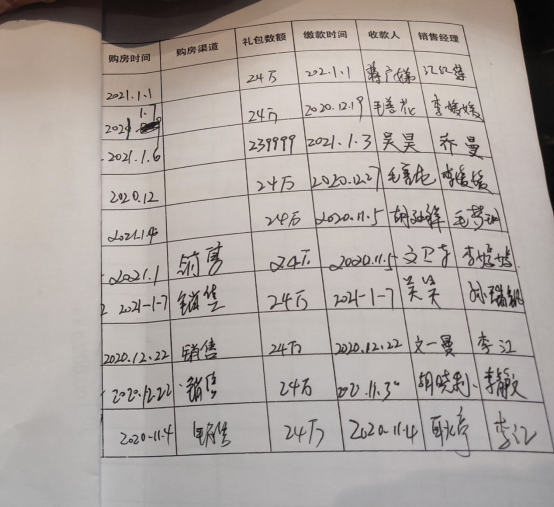 购房时间 购房渠道 礼包数额 缴款时间 收款人 销售经理
2021.1.1 24万 202.1.1
1.7
2021 24万 2020.12.19 毛善花 李媛媛
2021.1.6 239999 2021.1.3 吴昊 乔曼
2020.12 24万 2020.12.27 李媛媛
2021.1.4 24万 2020.11.5
2021.1 销售 24万 2020.11.5
2021-1-7 销售 24万 2021-1-7 吴昊
2020.12.22 销售 24万 2020.12.22 文一曼 李江
2020.12.22 销售 24万 2020.11.30 胡晓利 李静文
2020.11.4 销售 24万 2020.11.4 李江